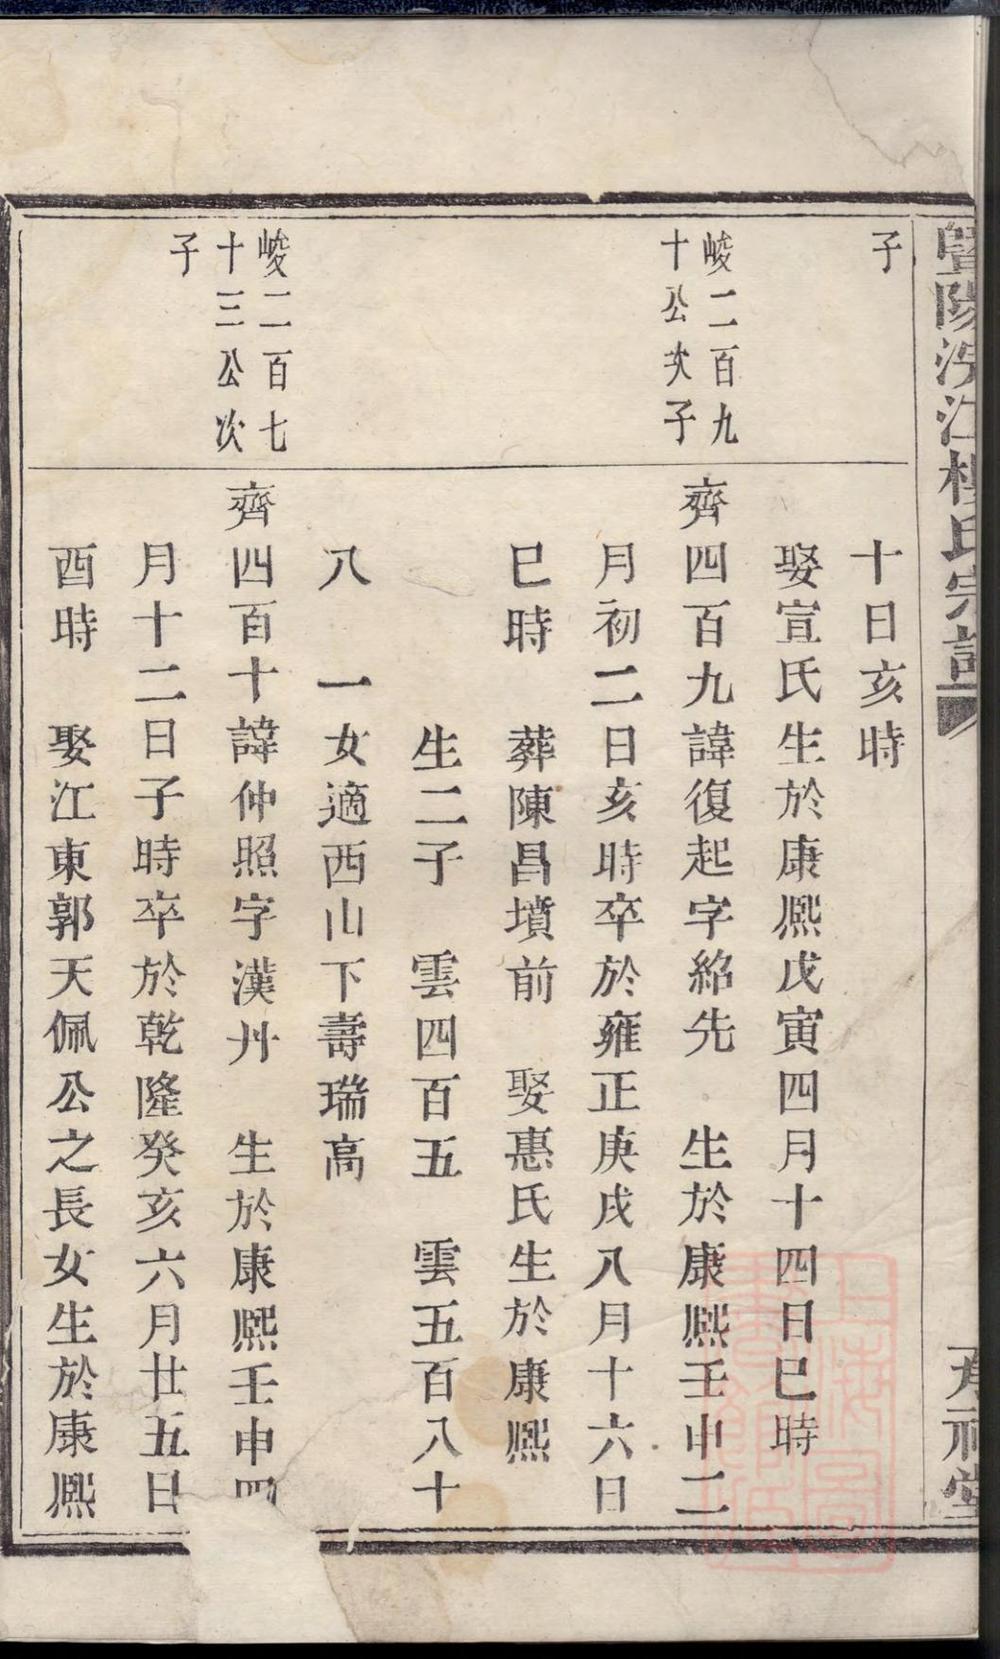 暨陽洗江楊氏宗譜
承祠堂
子
十日亥時
娶宣氏生於康熙戊寅四月十四日巳時
峻二百九
十公次子
齊四百九諱復起字紹先 生於康熙壬申二
月初二日亥時卒於雍正庚戌八月十六日
巳時 葬陳昌墳前 娶惠氏生於康熙
生二子 雲四百五 雲五百八十
八 一女適西山下壽瑞高
峻二百七
十三公次
子
齊四百十諱仲照字漢卅 生於康熙壬申四
月十二日子時卒於乾隆癸亥六月廿五日
酉時 娶江東郭天佩公之長女生於康熙